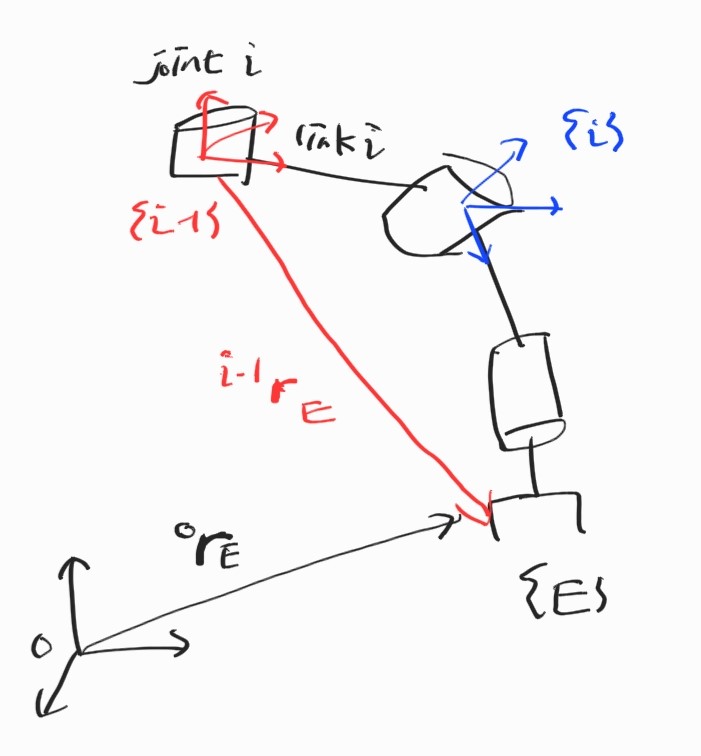 joint i
link i
{i}
{i-1}
i-1rE
0rE
0
{E}